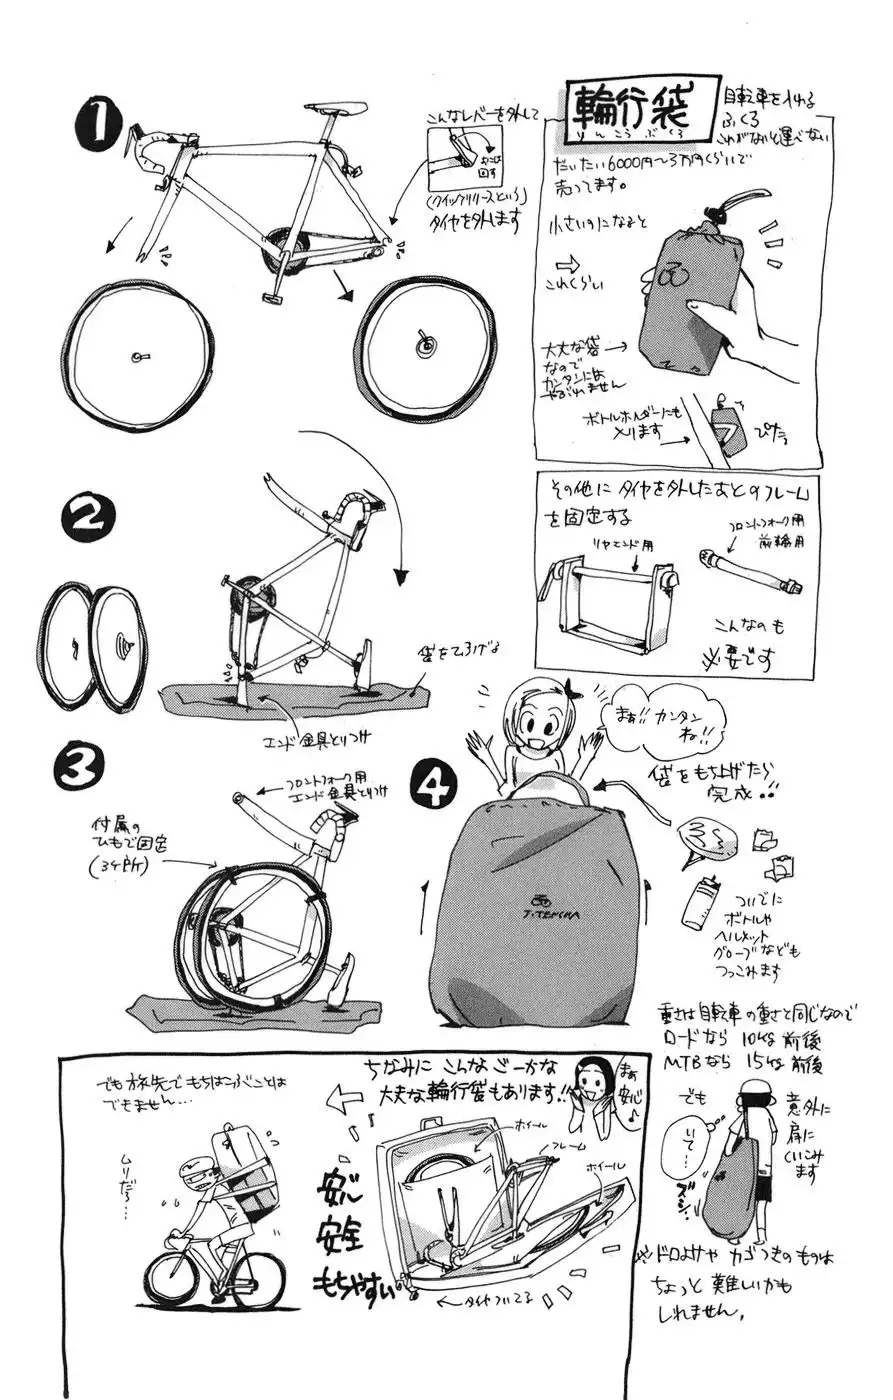 輪行袋
りんこうぶくろ
自転車を入れる
ふくろ
これがないと運べない
だいたい6000円〜3万円くらいで
売ってます。
小さいのになると
これくらい
大丈な袋
なので
カンタンには
やぶれません
ボトルホルダーにも
入ります
ぴたっ
その他にタイヤを外したあとのフレーム
を固定する
リヤエンド用
フロントフォーク用
前輪用
こんなのも
必要です
1
こんなレバーを外して
固す
(クイックリリースという)
タイヤを外します
2
袋をひろげる
エンド金具とりつけ
3
フロントフォーク用
エンド金具とりつけ
付属の
ひもで固定
(3ヶ所)
4
まぁ!!カンタン
ね!!
袋をもち上げたら
完成!!
ついでに
ボトルや
ヘルメット
グローブなども
つっこみます
重さは自転車の重さと同じなので
ロードなら 10kg前後
MTBなら 15kg前後
でも
意外に
肩に
くいこみ
ます
いて…
ズシ
※ドロよけや カゴつきのものは
ちょっと難しいかも
しれません。
ちなみに こんなごーかな
大丈な輪行袋もあります!!
まぁ
安心♪
ホイール
フレーム
ホイール
安全
もちやすい
←タイヤついてる
でも旅先でもちはこぶことは
できません…
ムリだろ…